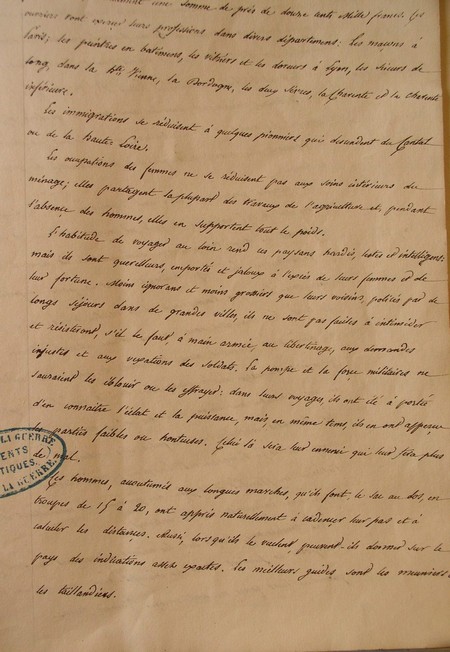 une somme de près de douze cents Mille francs. Ces
ouvriers vont exercer leurs professions dans divers départemens: les maçons à
Paris; les peintres en batimens, les vitriers et les doreurs à Lyon, les scieurs de
long, dans la hte Vienne, la Dordogne, les deux Sèvres, la Charente et la Charente
inférieure.
Les immigrations se réduisent à quelques pionniers qui descendent du Cantal
ou de la haute Loire.
Les occupations des femmes ne se réduisent pas aux soins intérieurs du
ménage; elles partagent la plupart des travaux de l'agriculture et, pendant
l'absence des hommes, elles en supportent tout le poids.
L'habitude de voyager au loin rend ces paysans hardis, lestes et intelligens:
mais ils sont querelleurs, emportés et jaloux à l'excès de leurs femmes et de
leur fortune. Moins ignorans et moins grossiers que leurs voisins, policés par de
longs séjours dans de grandes villes, ils ne sont pas faciles à intimider
et résisteront, s'il le faut à main armée, au libertinage, aux demandes
injustes et aux vexations des soldats. La pompe et la force militaires ne
sauraient les éblouir ou les effrayer: dans leurs voyages, ils ont été à portée
d'en connaître l'éclat et la puissance, mais, en même tems, ils en ont apperçu
les parties faibles ou honteuses. Celui là sera leur ennemi qui leur fera plus
de mal.
Ces hommes, accoutumés aux longues marches, qu'ils font le sac au dos, en
troupes de 15 à 20, ont appris naturellement à cadencer leur pas et à
calculer les distances. Aussi, lorsqu'ils le veulent, peuvent-ils donner sur le
pays des indications assez exactes. Les meilleurs guides sont les meuniers
les taillandiers.
LA GUERRE
ENTS
TIQUES.
LA GUERRE